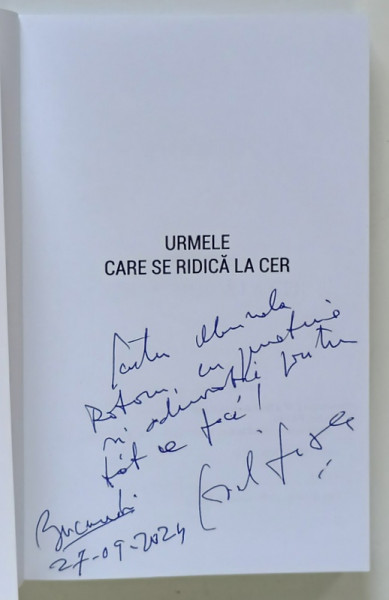 URMELE
CARE SE RIDICĂ LA CER
Pentru
Rotaru, cu prietenie
și admirație pentru
tot ce faci!
București
27-09-2024